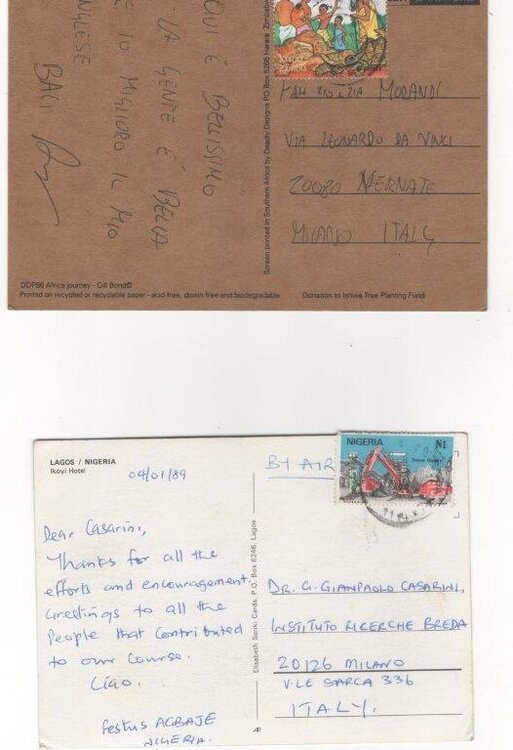 QUI È BELLISSIMO
LA GENTE È BELLA
E IO MIGLIORO IL MIO
INGLESE
BACI
ZAMBIA
FAM RIO E ZIA MORANDI
VIA LEONARDO DA VINCI
20080 VERNATE
MILANO ITALY
Screen printed in Southern Africa by Deadly Designs PO Box 5386 Harare Zimbabwe
DDP86 Africa journey - Gill Bond©
Printed on recycled or recyclable paper - acid free, dioxin free and biodegradable
Donation to Ishwa Tree Planting Fund
LAGOS / NIGERIA
Ikoyi Hotel
04/01/89
BY AIR
NIGERIA
N1
Stone Quarry
Dear Casarini,
Thanks for all the
efforts and encouragement.
Greetings to all the
People that contributed
to our course.
Ciao.
Festus AGBAJE
NIGERIA.
Elizabeth Sonic Cards. P.O. Box 6246, Lagos
DR. G. GIANPAOLO CASARINI,
INSTITUTO RICERCHE BREDA
20126 MILANO
V.LE SARCA 336
ITALY.